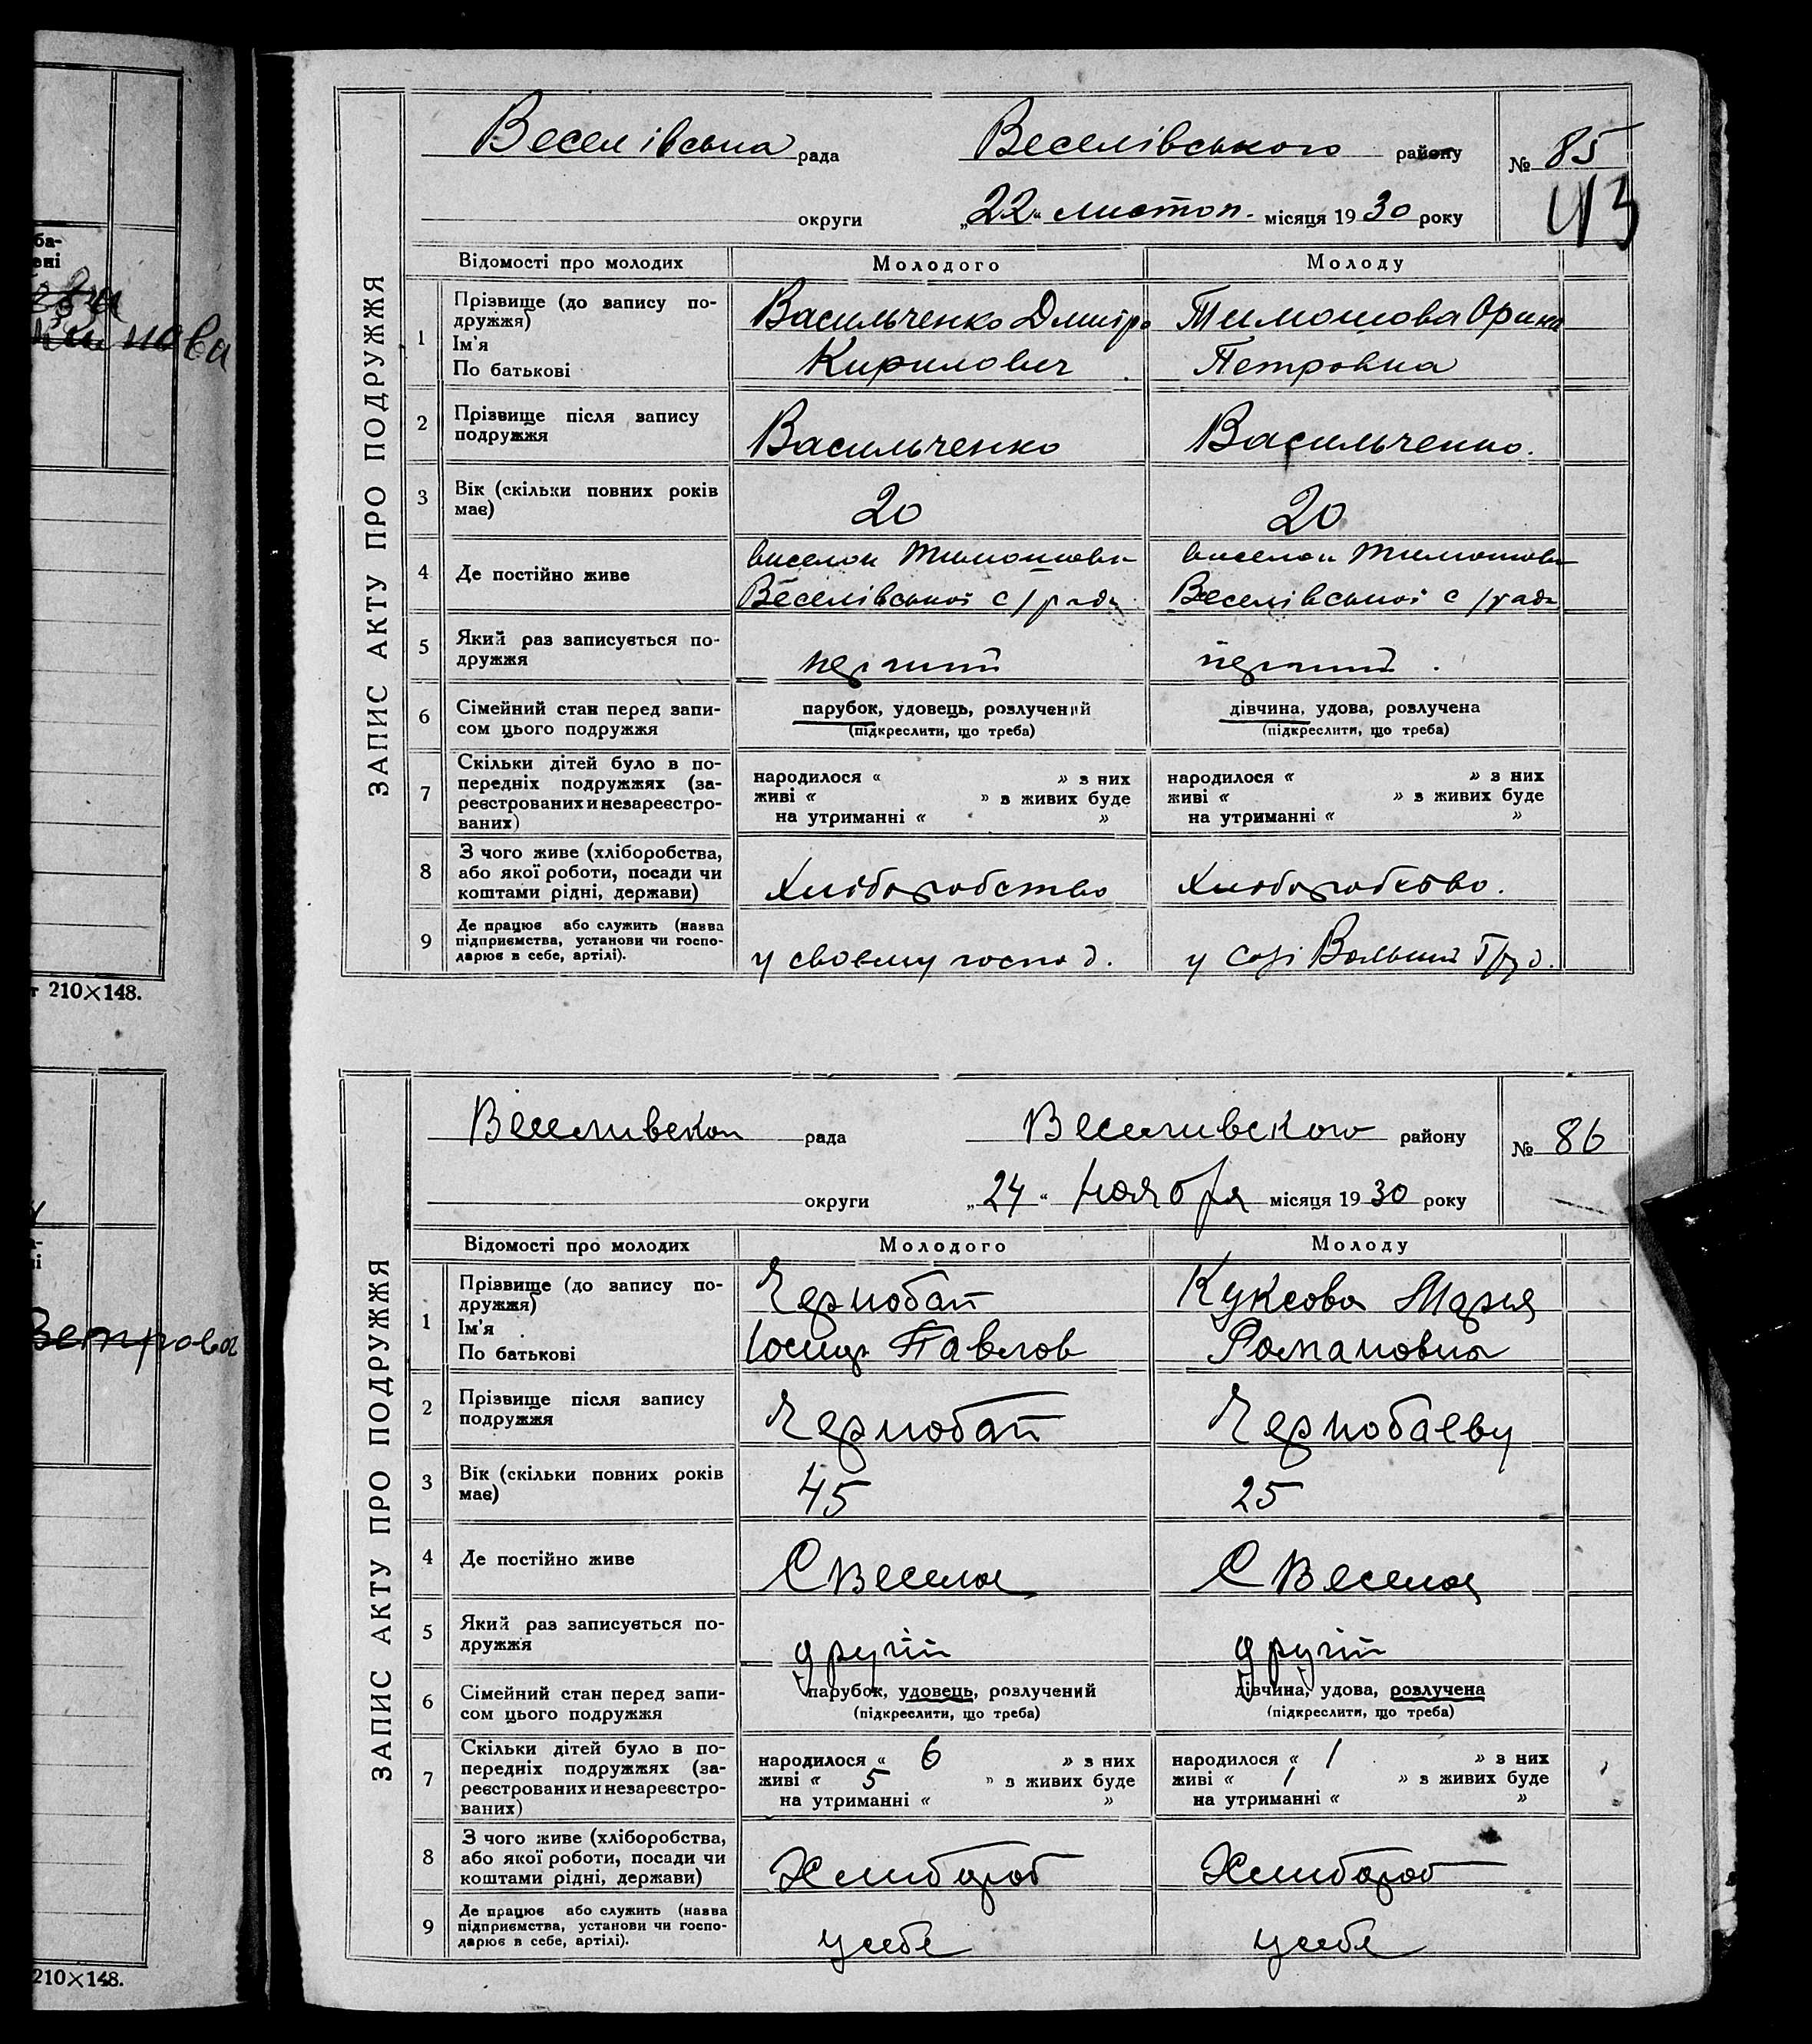 ЗАПИС АКТУ ПРО ПОДРУЖЖЯ
Веселівська рада Веселівського району № 85
округи „22“ листоп. місяця 1930 року 43
Відомості про молодих Молодого Молоду
1 Прізвище (до запису по-
дружжя)
Ім'я
По батькові
Васильченко Дмитро
Кирилович
Тимошова Орина
Петровна
2 Прізвище після запису
подружжя
Васильченко
Васильченко.
3 Вік (скільки повних років
має)
20
20
4 Де постійно живе
виселок Тимошовка
Веселівської с/ради
виселок Тимошовка
Веселівської с/ради
5 Який раз записується по-
дружжя
перший
перший.
6 Сімейний стан перед запи-
сом цього подружжя
парубок, удовець, розлучений
(підкреслити, що треба)
дівчина, удова, розлучена
(підкреслити, що треба)
7 Скільки дітей було в по-
передніх подружжях (за-
реєстрованих и незареєстро-
ваних)
народилося « » з них
живі « » з живих буде
на утриманні « »
народилося « » з них
живі « » з живих буде
на утриманні « »
8 З чого живе (хліборобства,
або якої роботи, посади чи
коштами рідні, держави)
Хліборобство
Хлоборобство.
9 Де працює або служить (назва
підприємства, установи чи госпо-
дарює в себе, артілі).
у своєму господ.
у созі Вольний Труд.
ЗАПИС АКТУ ПРО ПОДРУЖЖЯ
Веселивскои рада Веселивского району № 86
округи „24“ Ноября місяця 1930 року
Відомості про молодих Молодого Молоду
1 Прізвище (до запису по-
дружжя)
Ім'я
По батькові
Чернобай
Иосиф Павлов
Куксова Мария
Романовна
2 Прізвище після запису
подружжя
Чернобай
Чернобаеву
3 Вік (скільки повних років
має)
45
25
4 Де постійно живе
С Веселое
С Веселое
5 Який раз записується по-
дружжя
другій
другій
6 Сімейний стан перед запи-
сом цього подружжя
парубок, удовець, розлучений
(підкреслити, що треба)
дівчина, удова, розлучена
(підкреслити, що треба)
7 Скільки дітей було в по-
передніх подружжях (за-
реєстрованих и незареєстро-
ваних)
народилося « 6 » з них
живі « 5 » з живих буде
на утриманні « »
народилося « 1 » з них
живі « 1 » з живих буде
на утриманні « »
8 З чого живе (хліборобства,
або якої роботи, посади чи
коштами рідні, держави)
Хлибороб
Хлибороб
9 Де працює або служить (назва
підприємства, установи чи госпо-
дарює в себе, артілі).
усебе
усебе
210×148.
210×148.